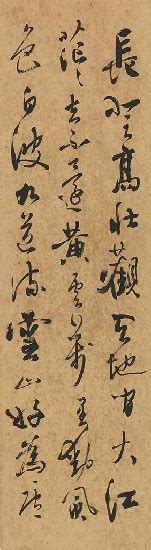 長登高壯觀天地間大江
茫茫去不還黃雲萬里動風
色白波九道流雪山好為廬